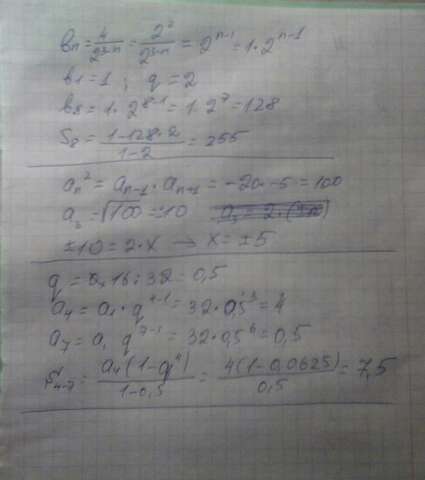 bn = 4/2^{3-n} = 2^2/2^{3-n} = 2^{n-1} = 1·2^{n-1}
b1 = 1 ; q = 2
b8 = 1·2^{8-1} = 1·2^7 = 128
S8 = (1-128·2)/(1-2) = 255
an^2 = an-1 · an+1 = -20·-5 = 100
a3 = √100 = ±10
±10 = 2·x → x = ±5
q = 16:32 = 0,5
a4 = a1·q^{4-1} = 32·0,5^3 = 4
a7 = a1 q^{7-1} = 32·0,5^6 = 0,5
S4-7 = a4(1-q^4)/(1-0,5) = 4(1-0,0625)/0,5 = 7,5